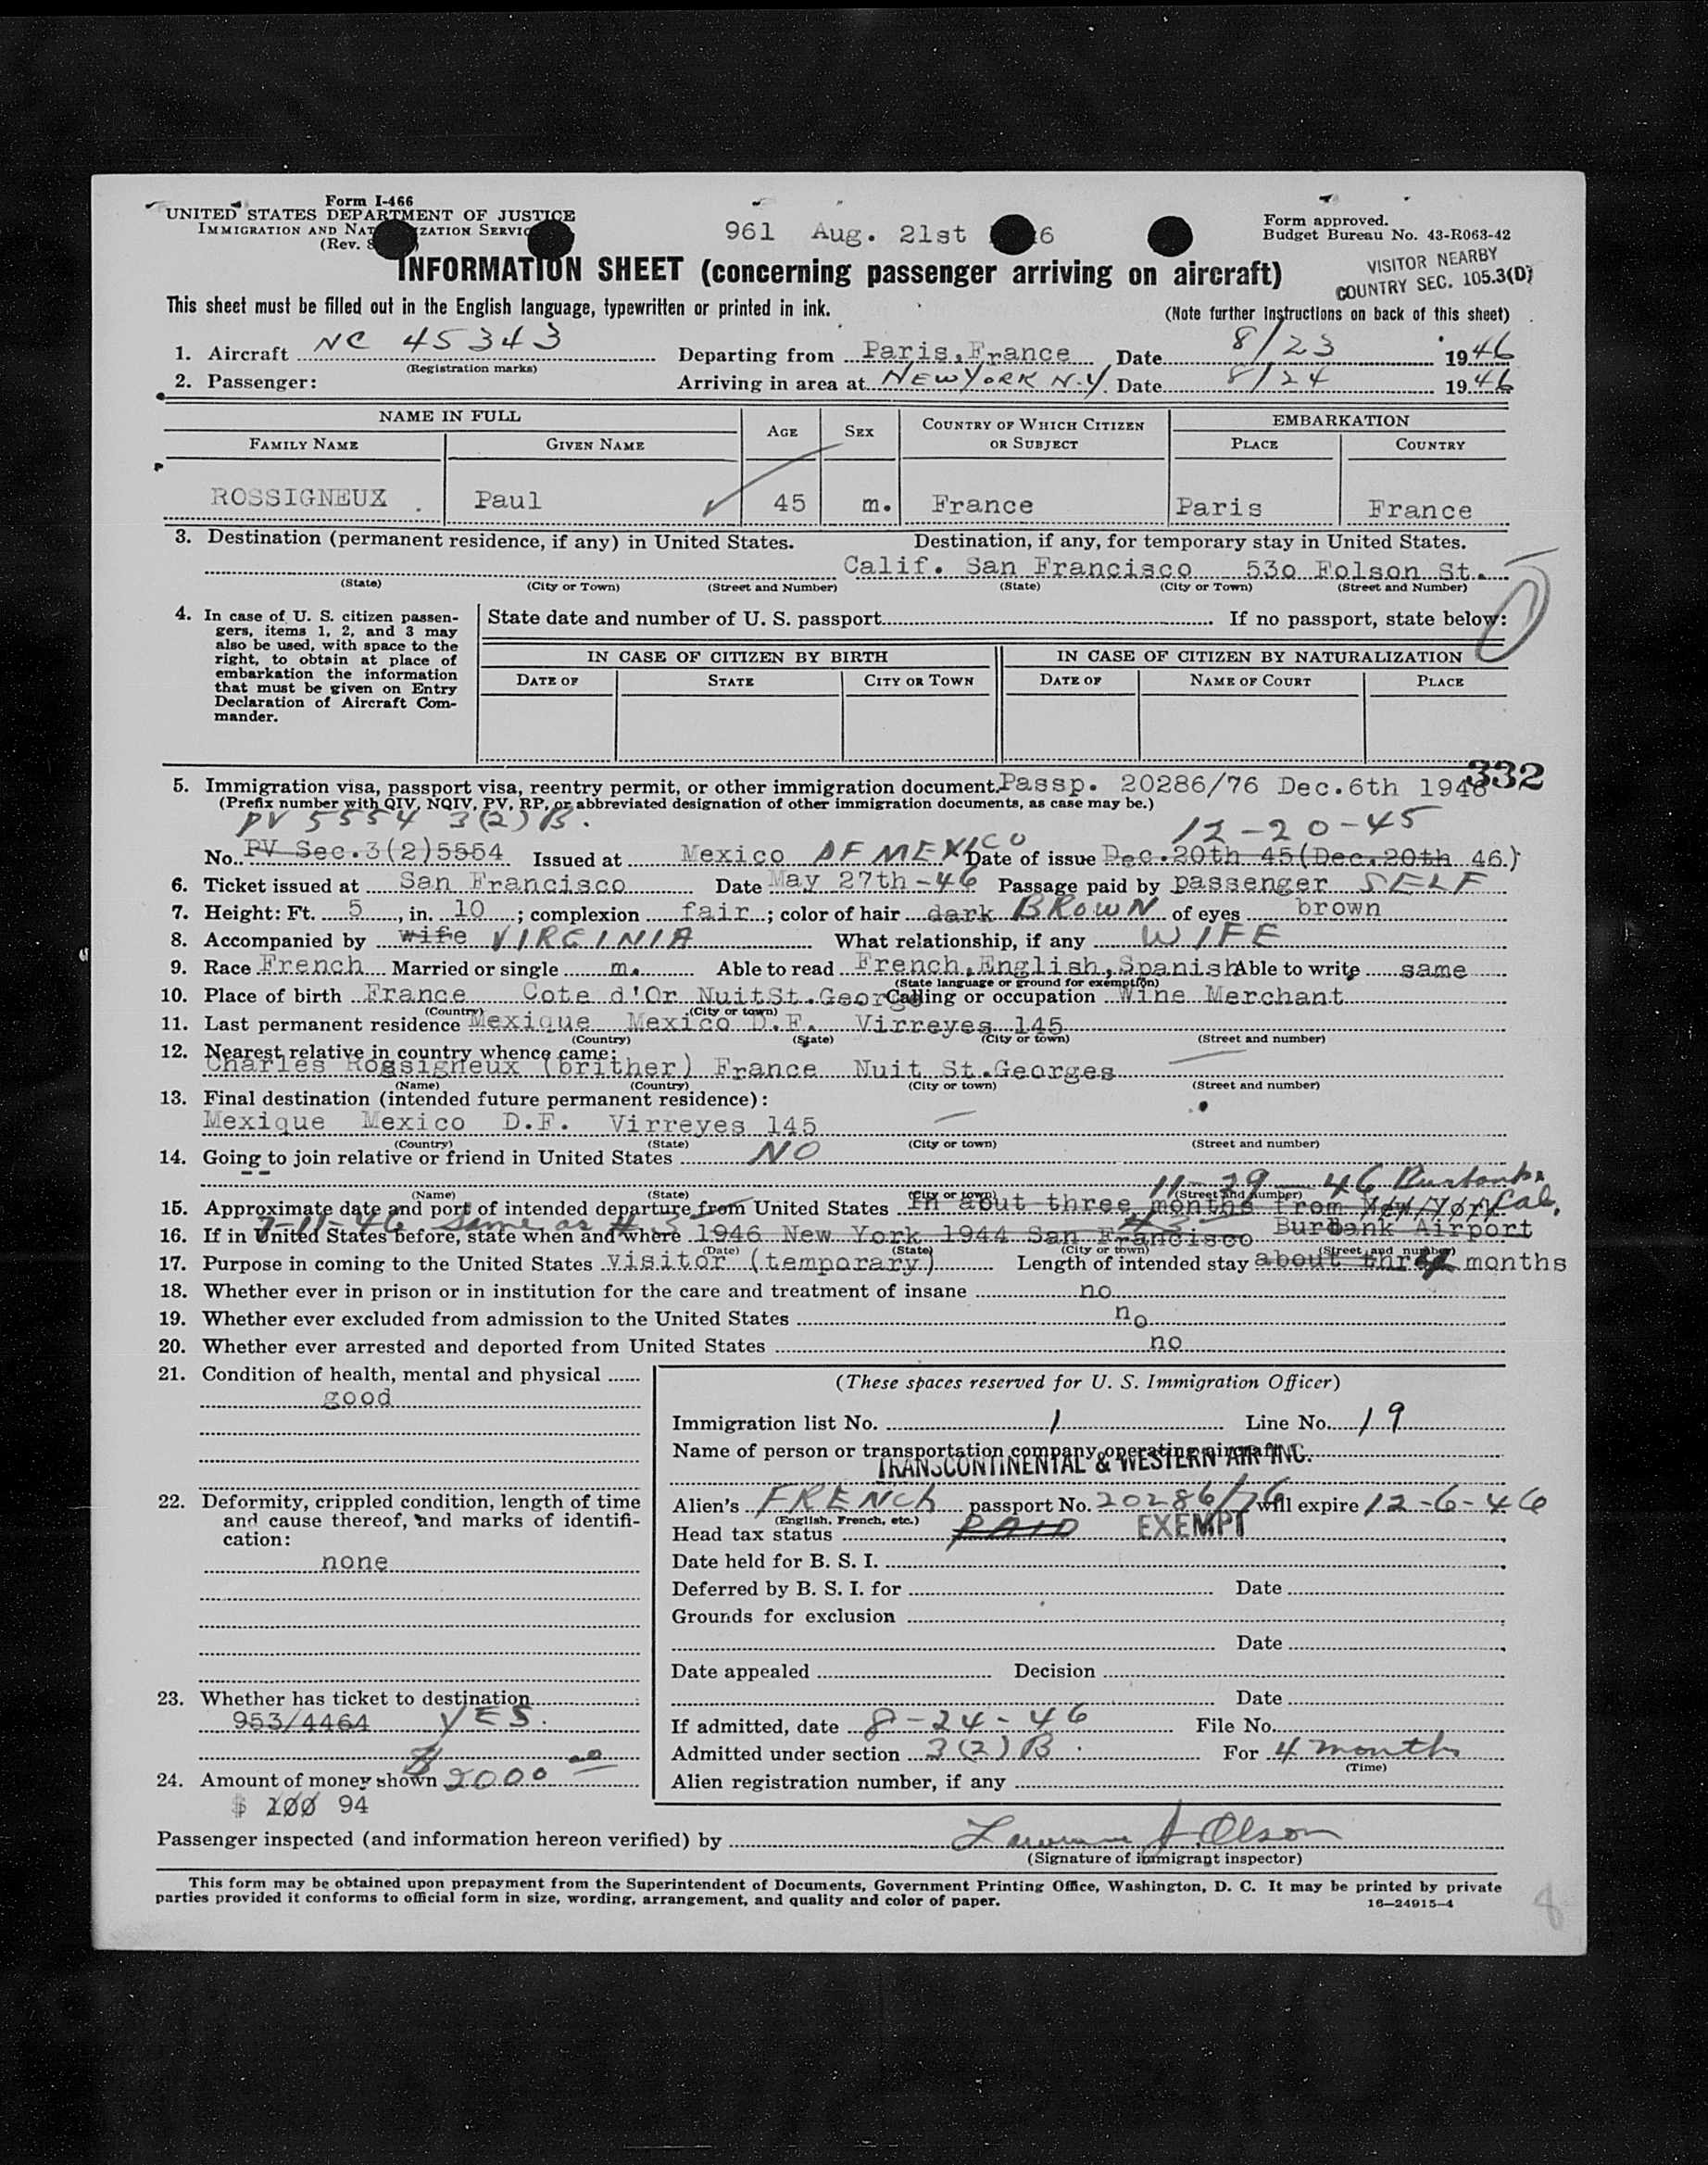 Form I-466
UNITED STATES DEPARTMENT OF JUSTICE
IMMIGRATION AND NATURALIZATION SERVICE
(Rev.
961 Aug. 21st 6
Form approved.
Budget Bureau No. 43-R063-42
INFORMATION SHEET (concerning passenger arriving on aircraft)
VISITOR NEARBY
COUNTRY SEC. 105.3(D)
This sheet must be filled out in the English language, typewritten or printed in ink.
(Note further instructions on back of this sheet)
1. Aircraft NC 45343 Departing from Paris, France Date 8/23 1946
(Registration marks)
2. Passenger: Arriving in area at NEW YORK N.Y. Date 8/24 1946
NAME IN FULL AGE SEX COUNTRY OF WHICH CITIZEN OR SUBJECT EMBARKATION
FAMILY NAME GIVEN NAME PLACE COUNTRY
ROSSIGNEUX Paul 45 m. France Paris France
3. Destination (permanent residence, if any) in United States. Destination, if any, for temporary stay in United States.
Calif. San Francisco 530 Folson St.
(State) (City or Town) (Street and Number) (State) (City or Town) (Street and Number)
4. In case of U. S. citizen passen-
gers, items 1, 2, and 3 may
also be used, with space to the
right, to obtain at place of
embarkation the information
that must be given on Entry
Declaration of Aircraft Com-
mander.
State date and number of U. S. passport If no passport, state below:
IN CASE OF CITIZEN BY BIRTH IN CASE OF CITIZEN BY NATURALIZATION
DATE OF STATE CITY OR TOWN DATE OF NAME OF COURT PLACE
332
5. Immigration visa, passport visa, reentry permit, or other immigration document. Passp. 20286/76 Dec.6th 1946
(Prefix number with QIV, NQIV, PV, RP, or abbreviated designation of other immigration documents, as case may be.)
PV 5554 3(2)B. 12-20-45
No. PV Sec.3(2)5554 Issued at Mexico DF MEXICO Date of issue Dec.20th 45(Dec.20th 46.)
6. Ticket issued at San Francisco Date May 27th-46 Passage paid by passenger SELF
7. Height: Ft. 5, in. 10; complexion fair; color of hair dark BROWN of eyes brown
8. Accompanied by wife VIRGINIA What relationship, if any WIFE
9. Race French Married or single m. Able to read French,English,Spanish Able to write same
(State language or ground for exemption)
10. Place of birth France Cote d'Or NuitSt.George Calling or occupation Wine Merchant
(Country) (City or town)
11. Last permanent residence Mexique Mexico D.F. Virreyes 145
(Country) (State) (City or town) (Street and number)
12. Nearest relative in country whence came:
Charles Rossigneux (brither) France Nuit St.Georges
(Name) (Country) (City or town) (Street and number)
13. Final destination (intended future permanent residence):
Mexique Mexico D.F. Virreyes 145
(Country) (State) (City or town) (Street and number)
14. Going to join relative or friend in United States NO
11-29-46 Burbank
(Name) (State) (City or town) (Street and number)
15. Approximate date and port of intended departure from United States In abut three months from New York Cal.
7-11-46 Same as # 3
16. If in United States before, state when and where 1946 New York 1944 San Francisco Burbank Airport
(Date) (State) (City or town) (Street and number)
17. Purpose in coming to the United States visitor (temporary) Length of intended stay about three 4 months
18. Whether ever in prison or in institution for the care and treatment of insane no
19. Whether ever excluded from admission to the United States no
20. Whether ever arrested and deported from United States no
21. Condition of health, mental and physical
good
22. Deformity, crippled condition, length of time
and cause thereof, and marks of identifi-
cation:
none
23. Whether has ticket to destination
953/4464 YES.
24. Amount of money shown $ 2000 00
$ 100 94
(These spaces reserved for U. S. Immigration Officer)
Immigration list No. 1 Line No. 19
Name of person or transportation company operating aircraft
TRANSCONTINENTAL & WESTERN AIR INC.
Alien's FRENCH passport No. 20286/76 will expire 12-6-46
(English, French, etc.)
Head tax status PAID EXEMPT
Date held for B. S. I.
Deferred by B. S. I. for Date
Grounds for exclusion
Date
Date appealed Decision
Date
If admitted, date 8-24-46 File No.
Admitted under section 3(2)B. For 4 months
(Time)
Alien registration number, if any
Passenger inspected (and information hereon verified) by Lawrence J. Olson
(Signature of immigrant inspector)
This form may be obtained upon prepayment from the Superintendent of Documents, Government Printing Office, Washington, D. C. It may be printed by private
parties provided it conforms to official form in size, wording, arrangement, and quality and color of paper. 16—24915-4
8